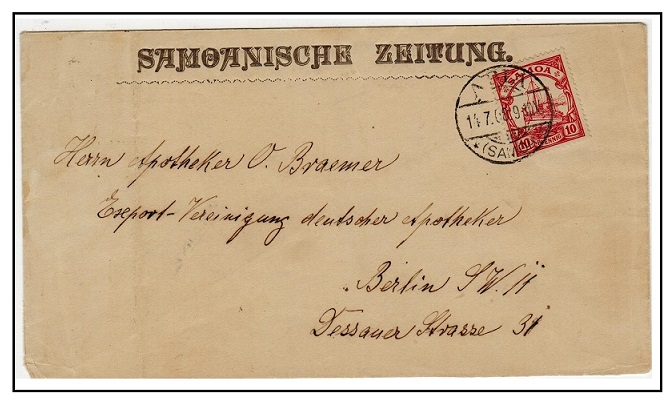 SAMOANISCHE ZEITUNG.
SAMOA
10 PFENNIG 10
(SAM
Herrn Apotheker O. Braemer
Export-Vereinigung deutscher Apotheker
Berlin S.W. 11
Dessauer Strasse 31